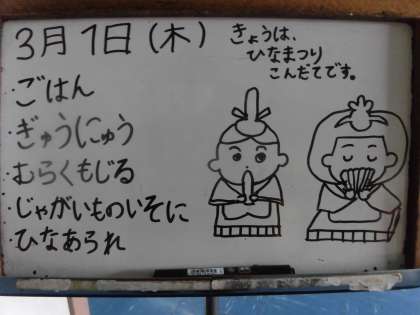 3月1日(木)
きょうは、
ひなまつり
こんだてです。
・ごはん
・ぎゅうにゅう
・むらくもじる
・じゃがいものいそに
・ひなあられ